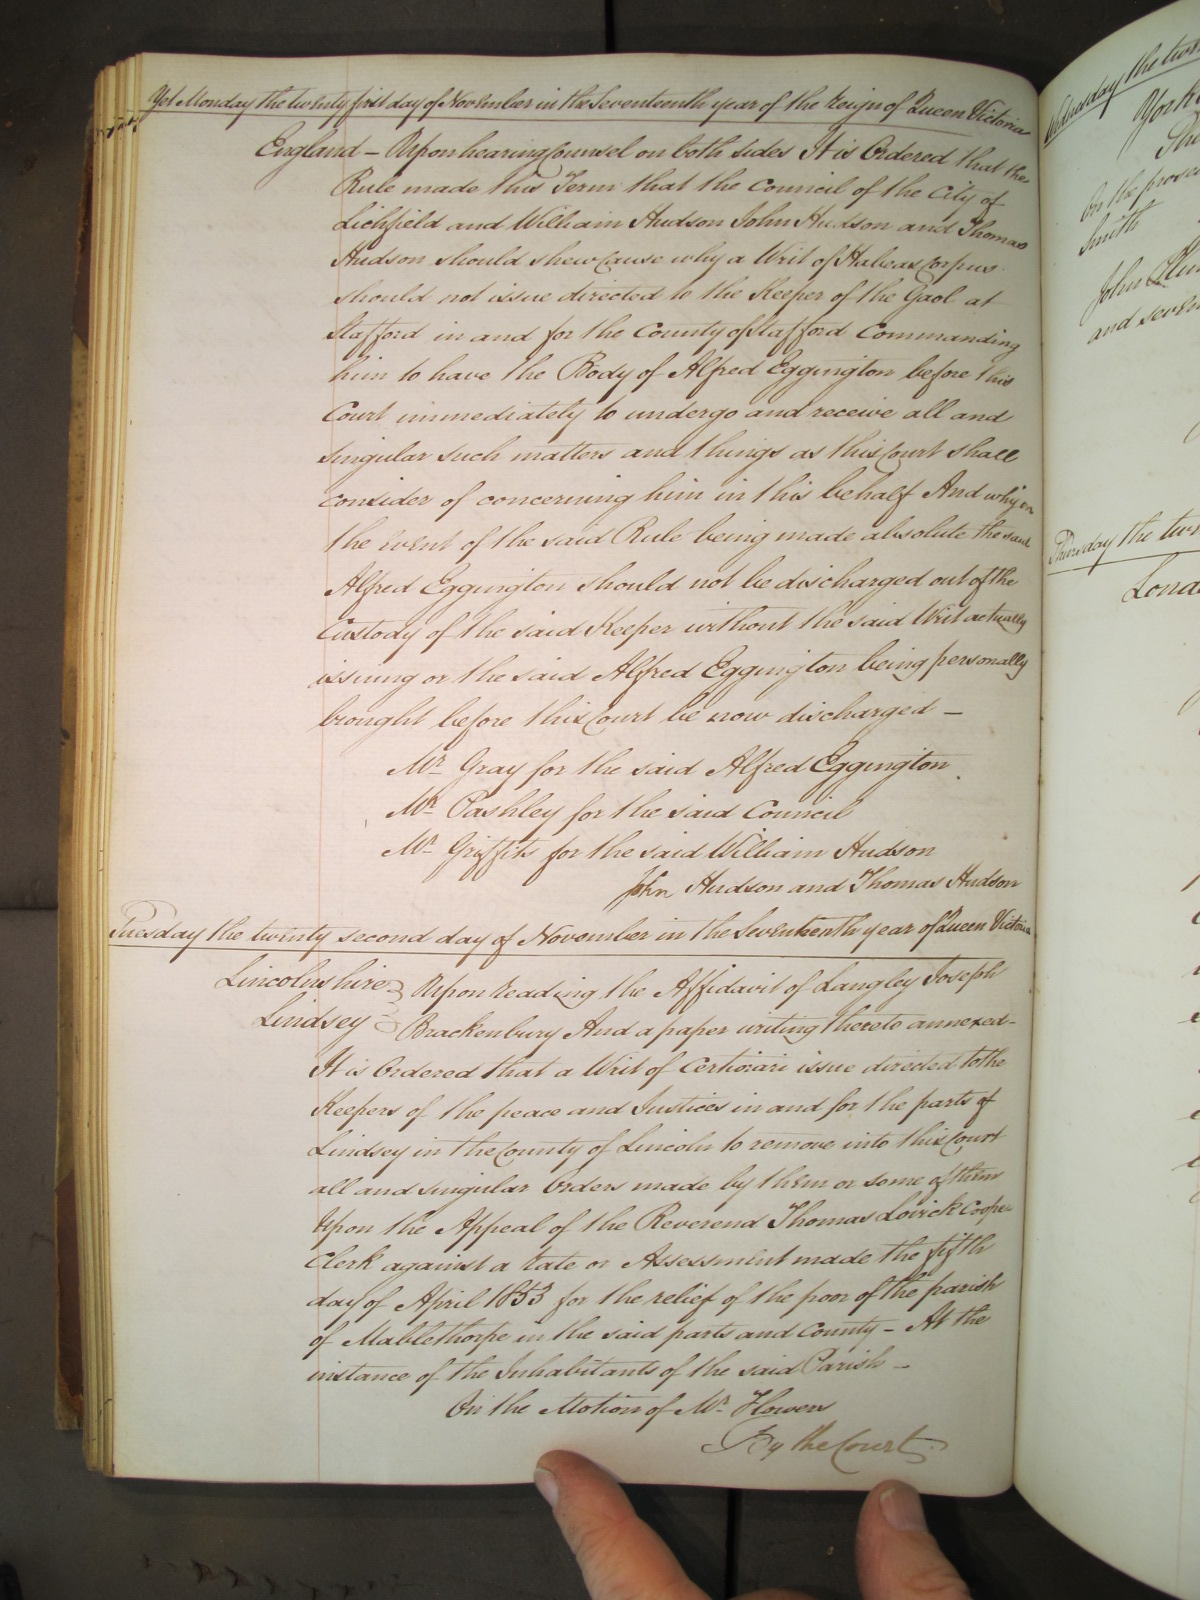 Yet Monday the twenty first day of November in the Seventeenth year of the reign of Queen Victoria
England – Upon hearing Counsel on both sides It is Ordered that the
Rule made this Term that the Council of the City of
Lichfield and William Hudson John Hudson and Thomas
Hudson should shew Cause why a Writ of Habeas Corpus
should not issue directed to the Keeper of the Gaol at
Stafford in and for the County of Stafford Commanding
him to have the Body of Alfred Eggington before this
Court immediately to undergo and receive all and
singular such matters and things as this Court shall
consider of concerning him in this behalf And why in
the event of the said Rule being made absolute the said
Alfred Eggington should not be discharged out of the
Custody of the said Keeper without the said Writ actually
issuing or the said Alfred Eggington being personally
brought before this Court be now discharged –
Mr Gray for the said Alfred Eggington
Mr Pashley for the said Council
Mr Griffits for the said William Hudson
John Hudson and Thomas Hudson
Tuesday the twenty second day of November in the Seventeenth year of Queen Victoria
Lincolnshire } Upon reading the Affidavit of Langley Joseph
Lindsey } Brackenbury And a paper writing thereto annexed –
It is Ordered that a Writ of Certiorari issue directed to the
Keepers of the peace and Justices in and for the parts of
Lindsey in the County of Lincoln to remove into this Court
all and singular Orders made by them or some of them
Upon the Appeal of the Reverend Thomas Lovick Cooper
Clerk against a rate or Assessment made the fifth
day of April 1853 for the relief of the poor of the parish
of Mablethorpe in the said parts and County – At the
instance of the Inhabitants of the said Parish –
On the Motion of Mr Flowers
By the Court
Wednesday the
On the
Smith
John
and
Thursday the